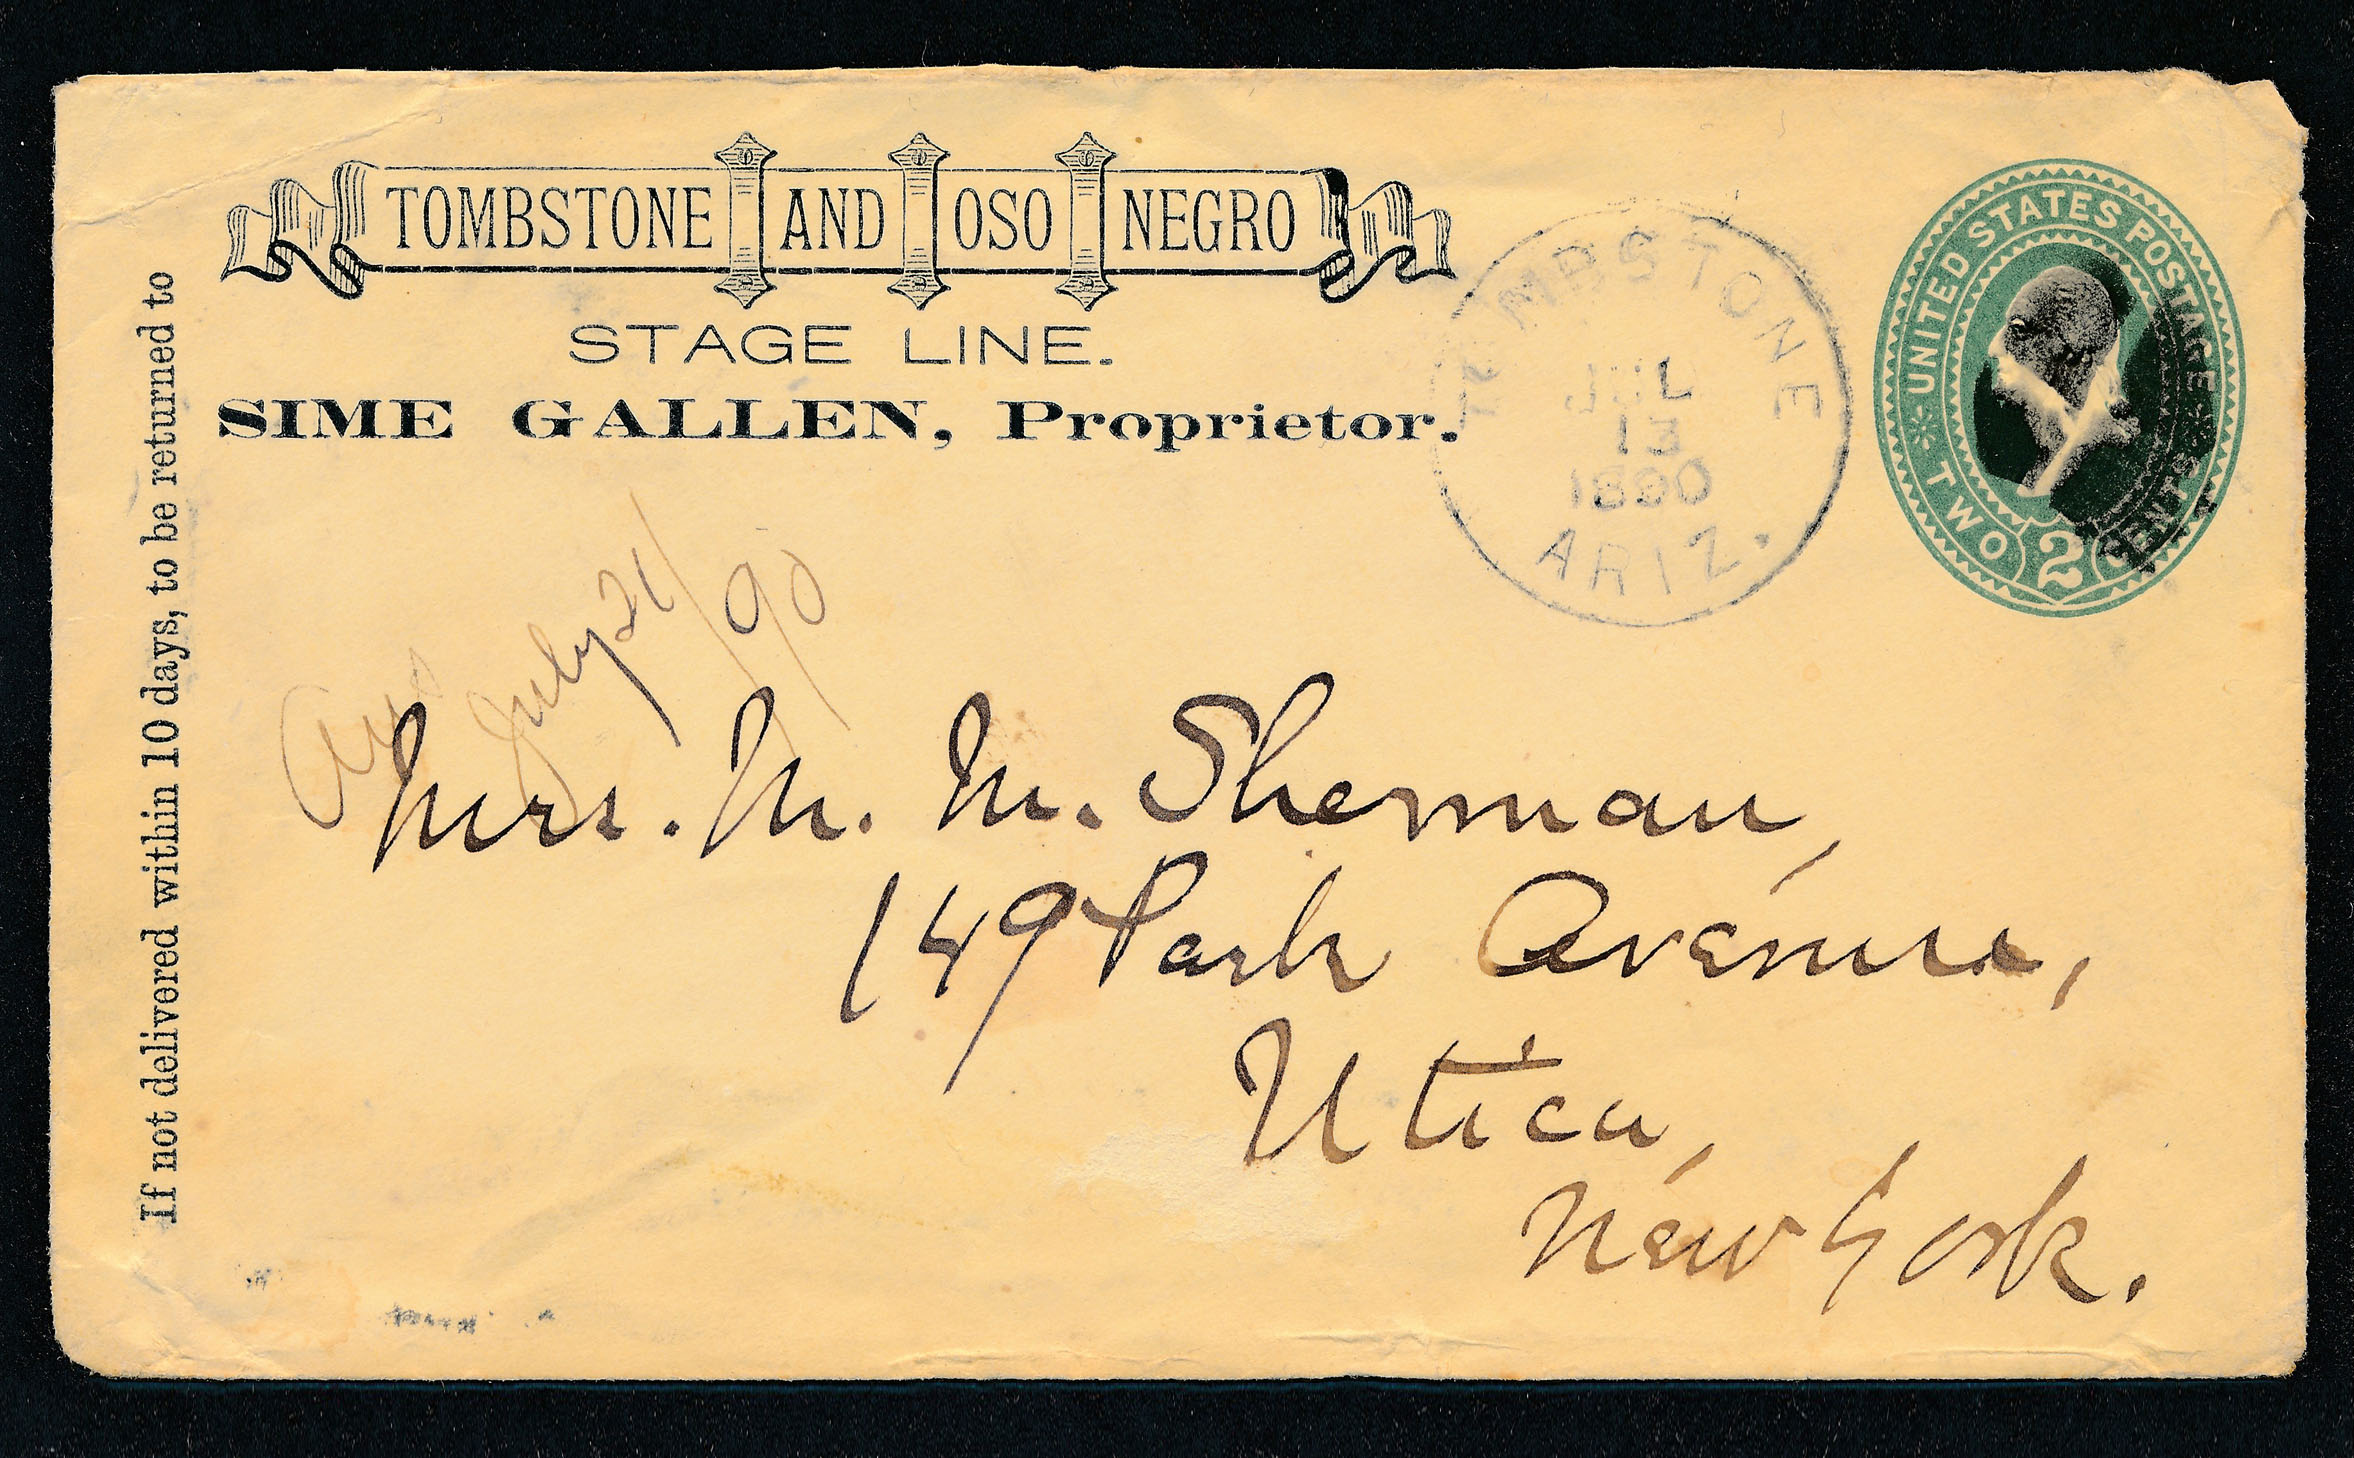 TOMBSTONE AND OSO NEGRO
STAGE LINE.
SIME GALLEN, Proprietor.
If not delivered within 10 days, to be returned to
TOMBSTONE
JUL
13
1890
ARIZ.
UNITED STATES POSTAGE
TWO 2 CENTS
Ans July 21/90
Mrs. M. M. Sherman,
149 Park Avenue,
Utica,
New York.